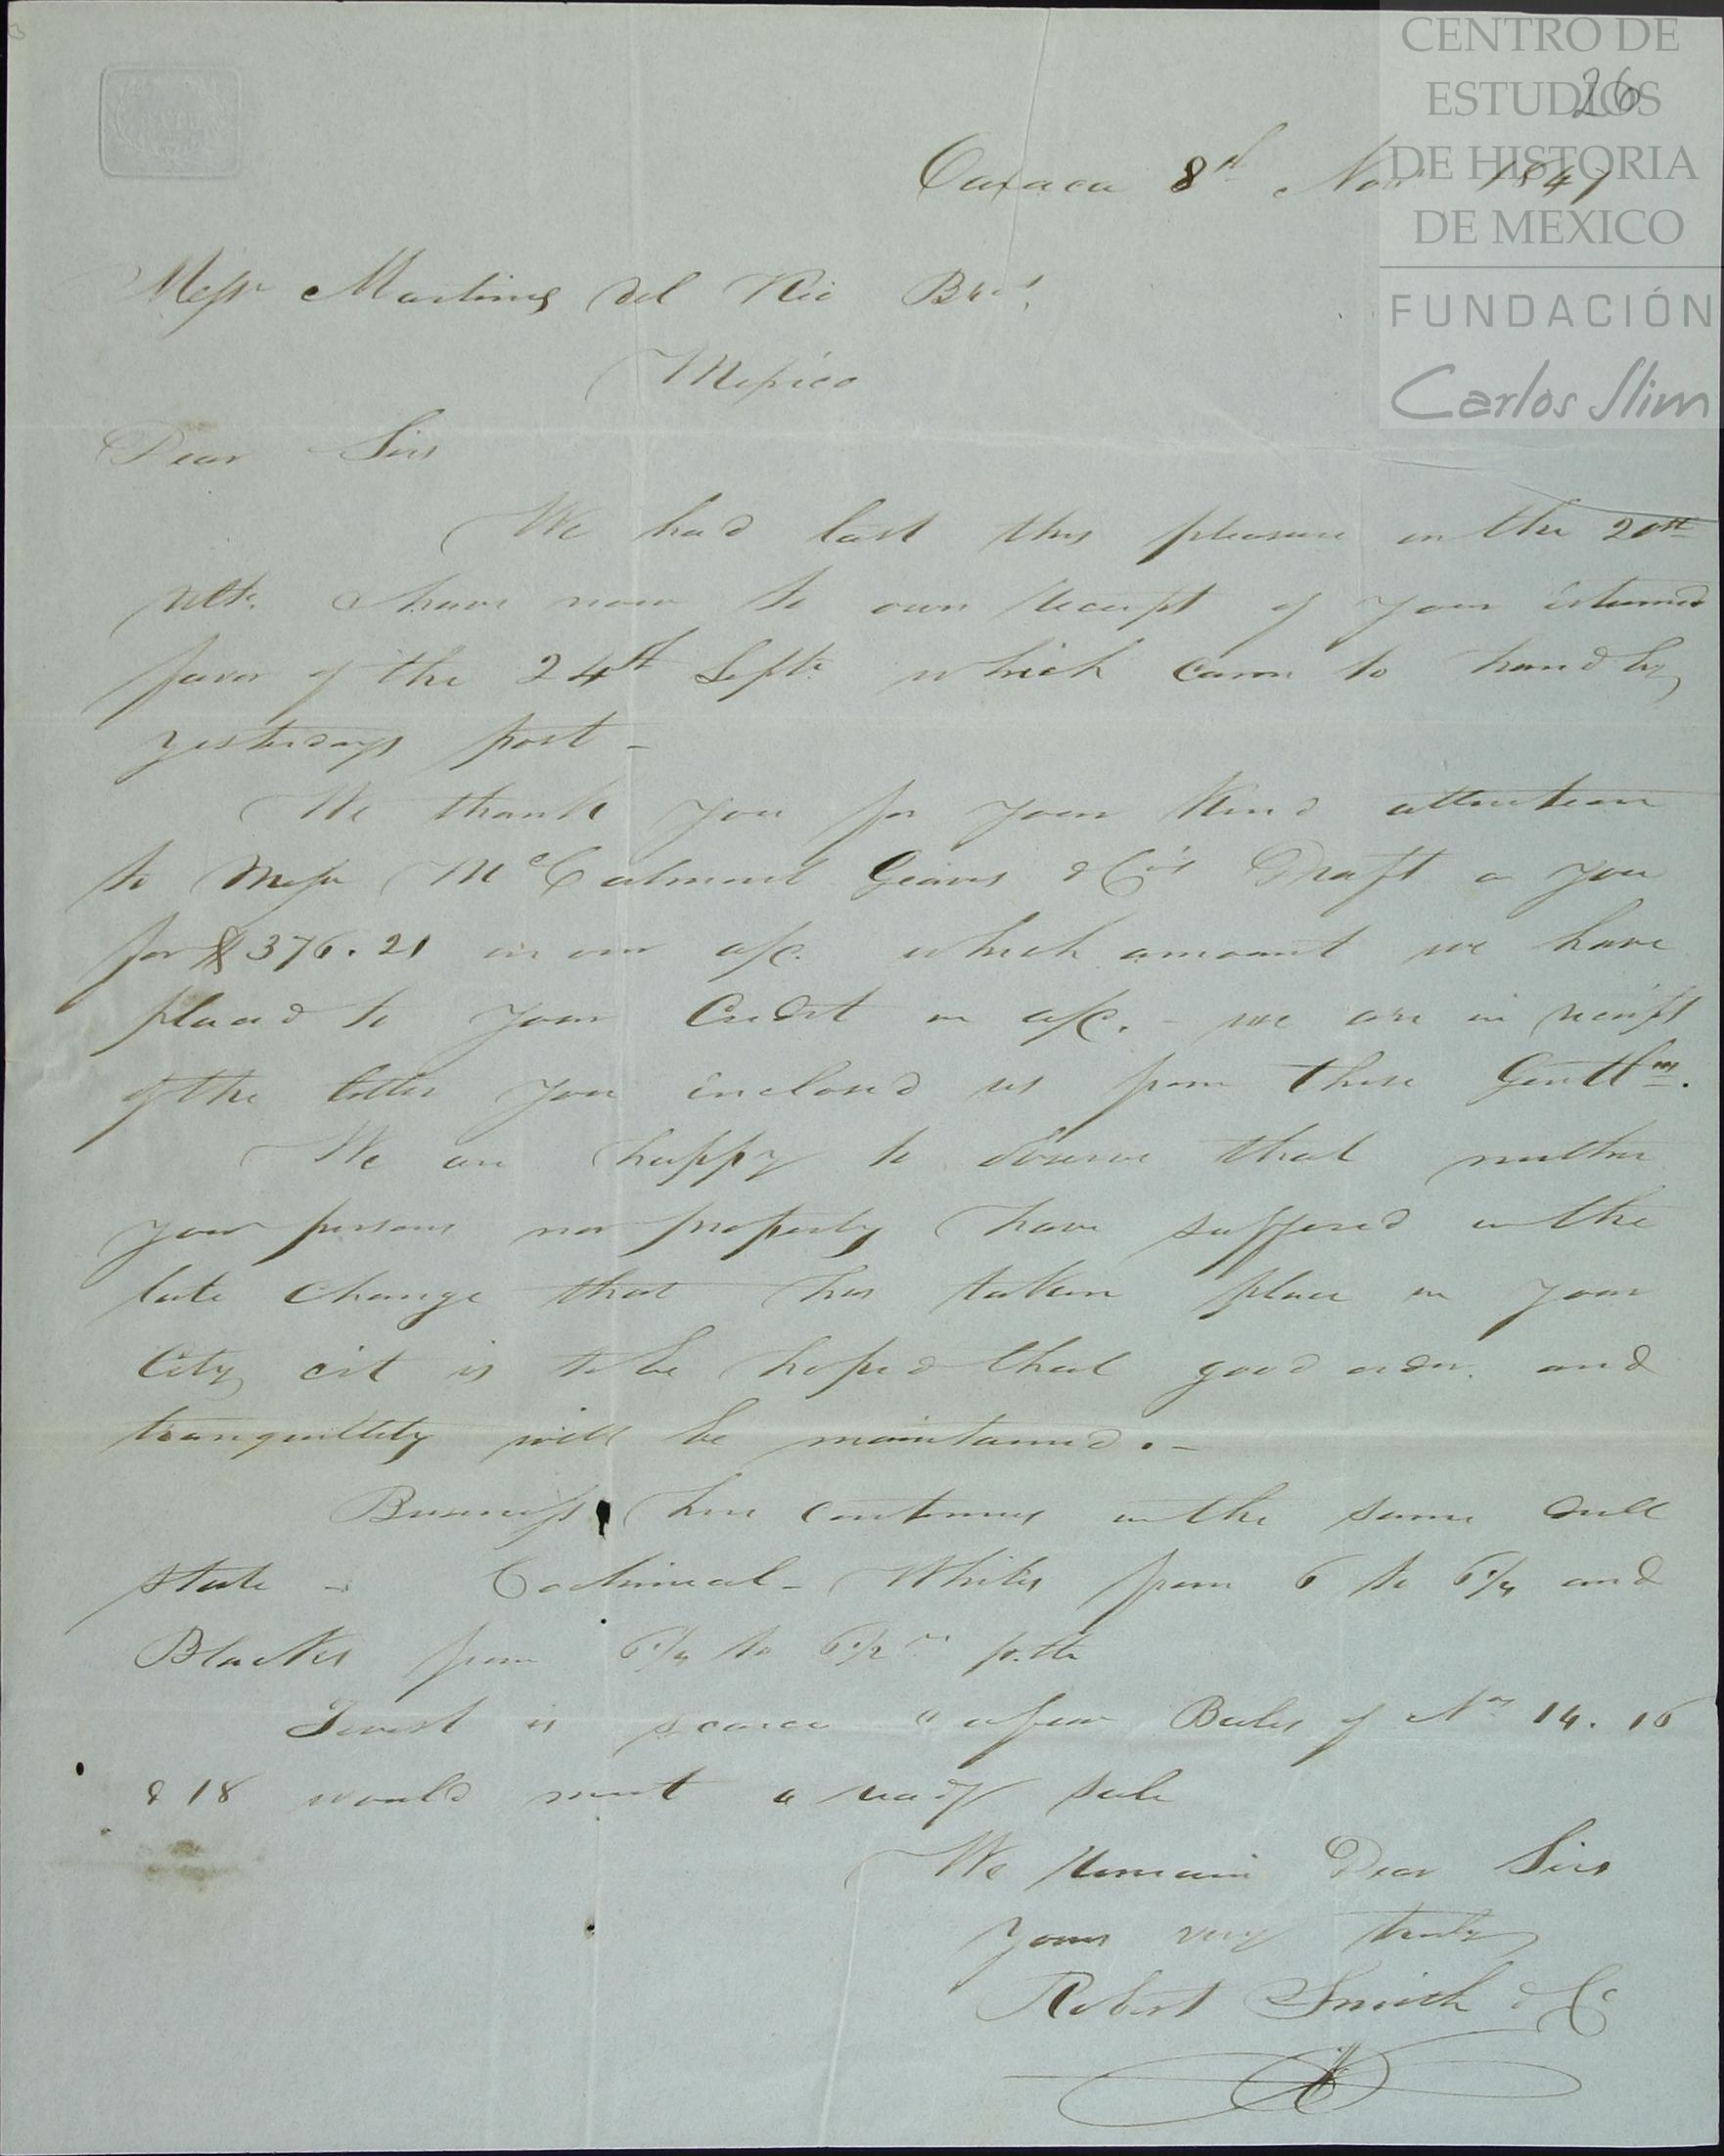 CENTRO DE
ESTUDIOS
DE HISTORIA
DE MEXICO
FUNDACIÓN
Carlos Slim
26
Oaxaca 8th Nov 1847
Messrs Martinez del Rio Bros.
Mexico
Dear Sirs
We had last this pleasure on the 20th
ulto. & have now to own receipt of your esteemed
favor of the 24th Septr. which came to hand by
yesterdays post -
We thank you for your Kind attention
to Messrs McCalmont Geaves & Co's Draft on you
for $376.21 on our a/c. which amount we have
placed to your Credit in a/c. - we are in receipt
of the letter you enclosed us from those Gentlm.
We are happy to observe that neither
your persons nor property have suffered in the
late change that has taken place in your
City & it is to be hoped that good order and
tranquillity will be maintained. -
Business here continues in the same dull
state - Cochineal - Whites from 6 to 6 1/4 and
Blackes from 6 1/4 to 6 1/2 rs p. lb
Twist is scarce & a few Bales of Nos 14. 16
& 18 would meet a ready sale
We remain Dear Sirs
Yours very truly
Robert Smith & Co